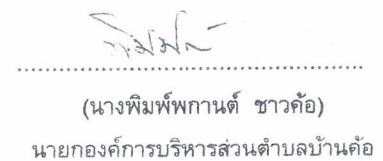 (นางพิมพ์พกานต์ ชาวค้อ)
นายกองค์การบริหารส่วนตำบลบ้านค้อ